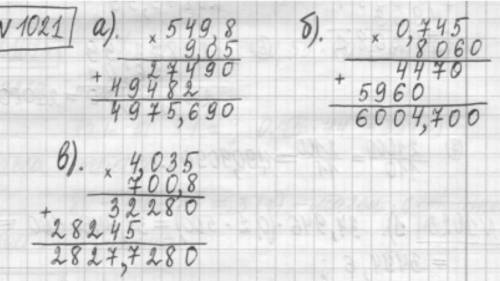 № 1021 а). × 549,8
9,05
+ 27490
49482
4975,690
б). × 0,745
8060
+ 4470
5960
6004,700
в). × 4,035
700,8
+ 32280
28245
2827,7280